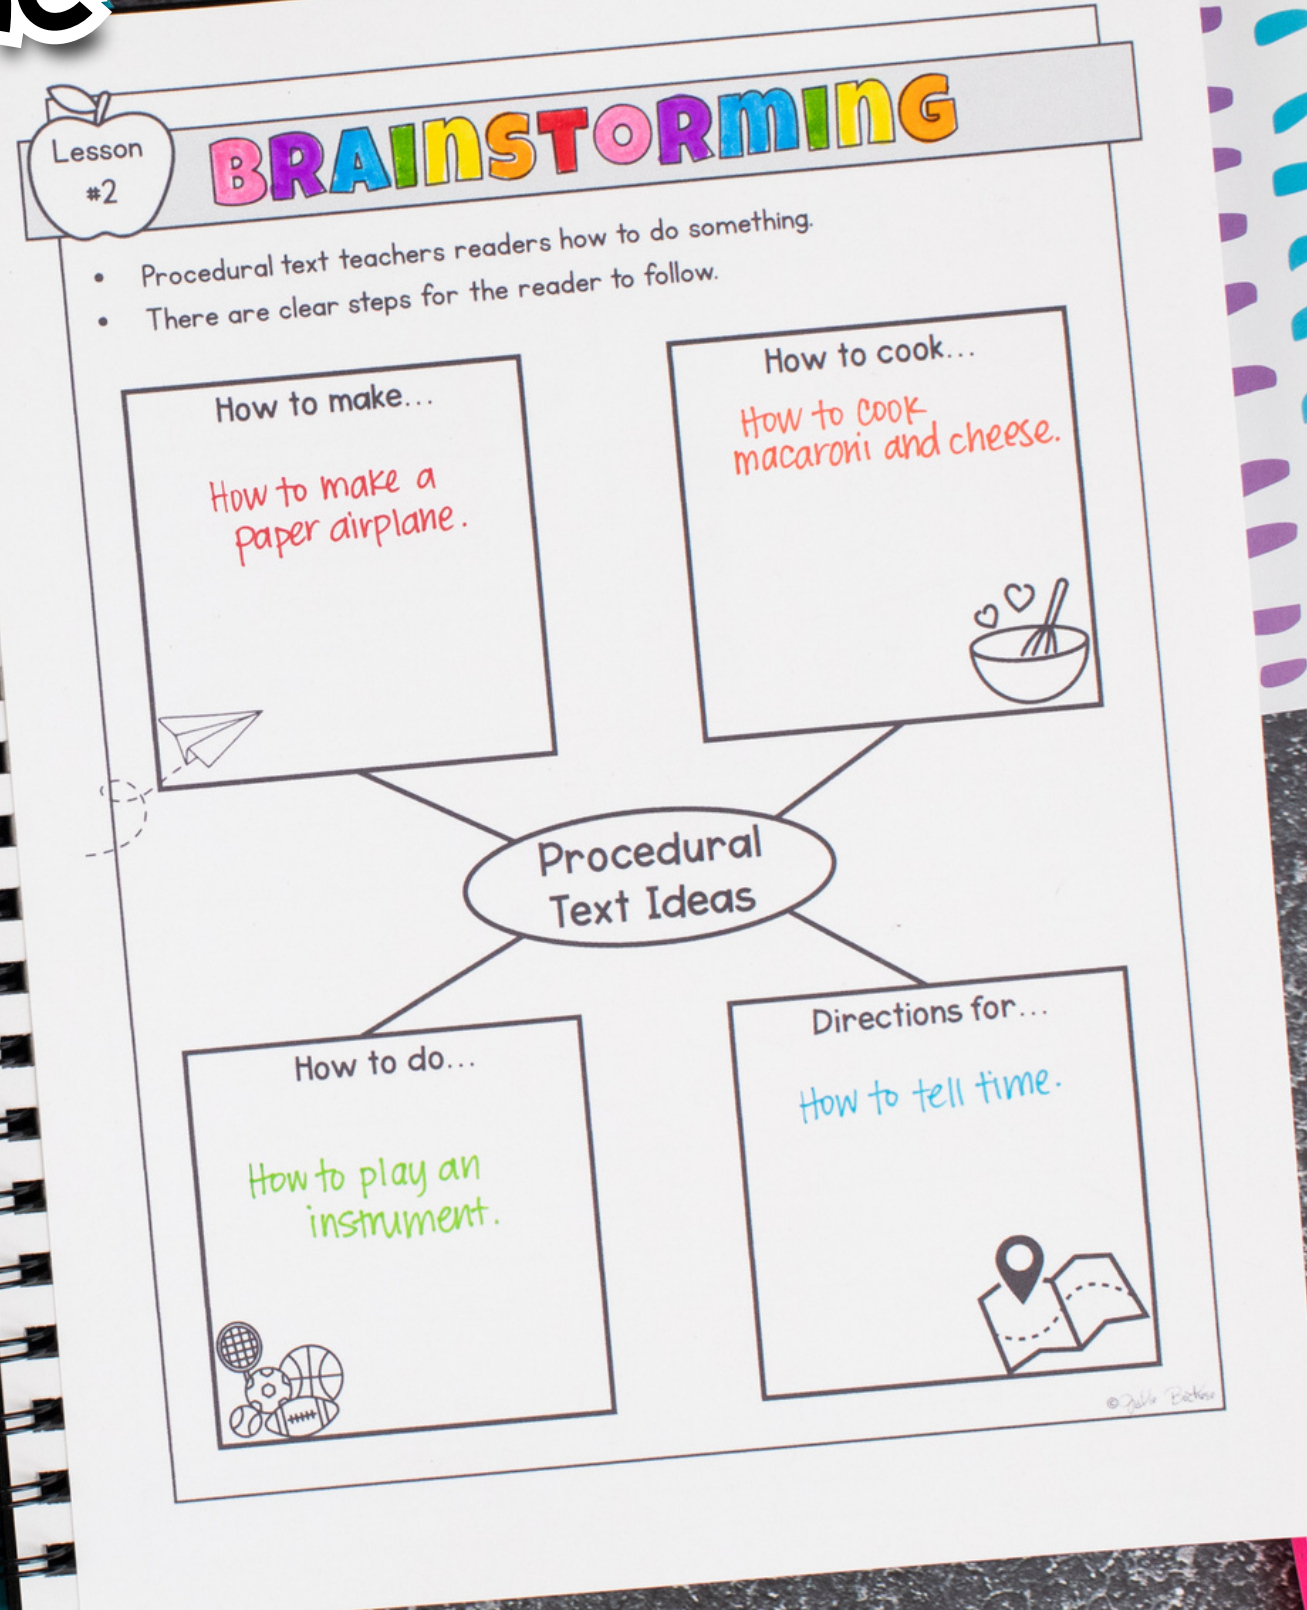 Lesson
#2
BRAINSTORMING
• Procedural text teachers readers how to do something.
• There are clear steps for the reader to follow.
How to make...
How to make a
paper airplane.
How to cook...
How to cook
macaroni and cheese.
Procedural
Text Ideas
How to do...
How to play an
instrument.
Directions for...
How to tell time.
©